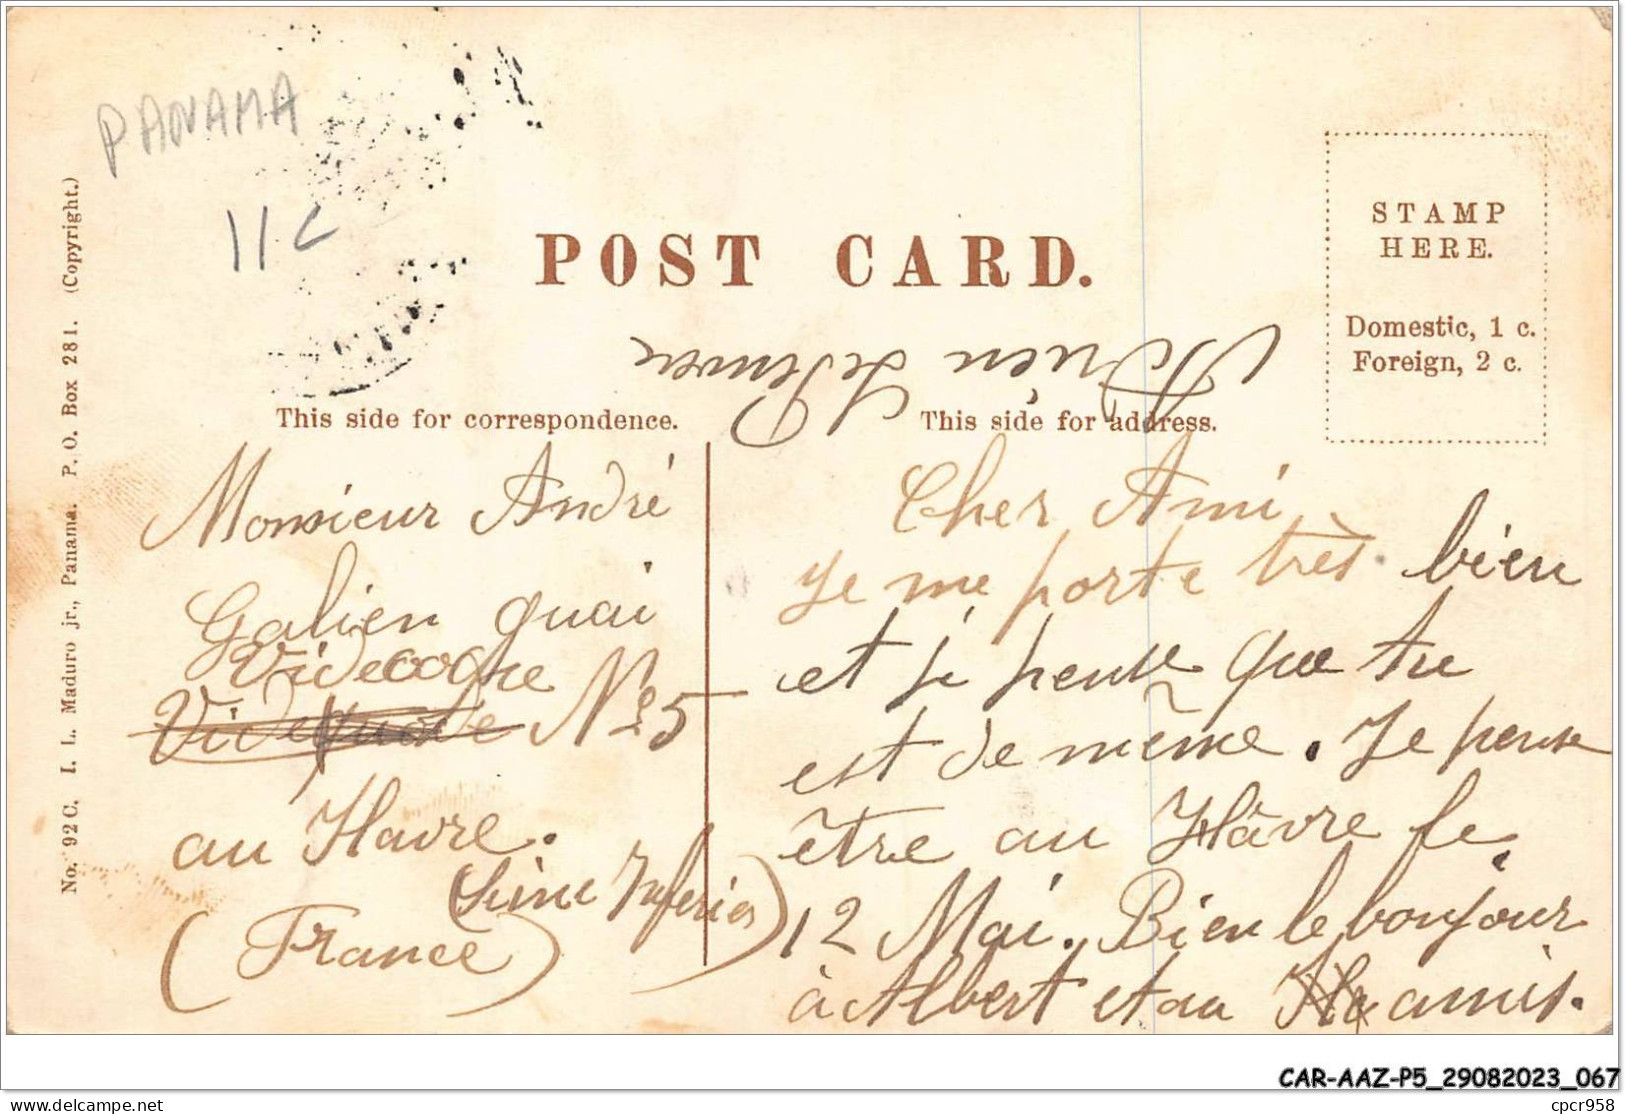 PANAMA
11 C
No. 92 C. I. L. Maduro jr., Panama. P. O. Box 281. (Copyright.)
POST CARD.
STAMP
HERE.
Domestic, 1 c.
Foreign, 2 c.
Adrien
This side for correspondence.
This side for address.
Monsieur André
Galien quai
Videcoque
No 5
au Havre.
(Seine Inferier)
(France)
Cher Ami
je me porte très bien
et je pense que tu
est de même. Je pense
être au Hâvre le
12 Mai. Bien le bonjour
à Albert et au amis.
CAR-AAZ-P5_29082023_067
delcampe.net
cpcr958